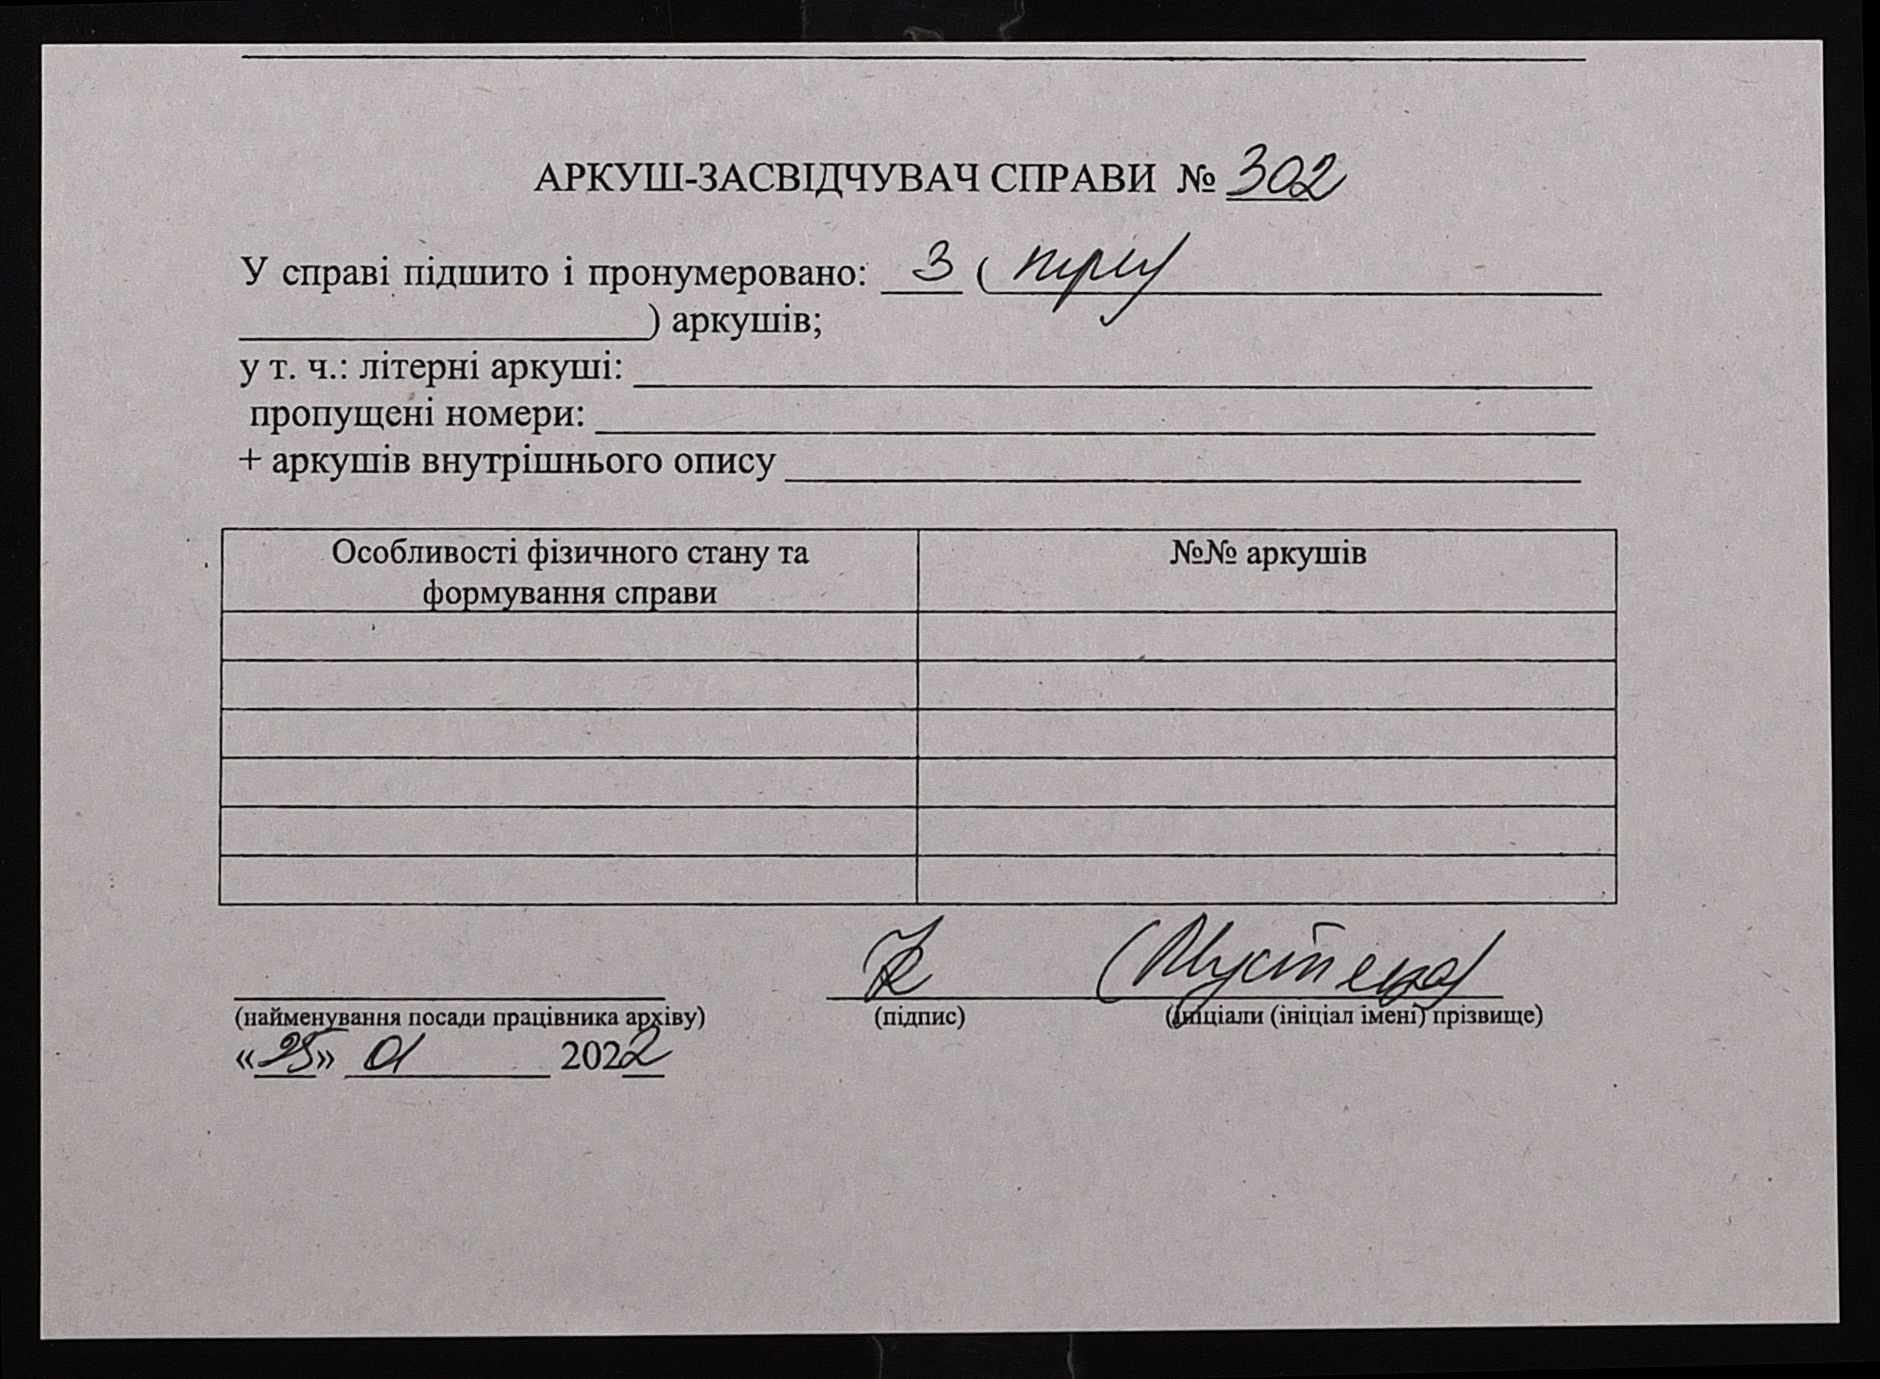 АРКУШ-ЗАСВІДЧУВАЧ СПРАВИ № 302
У справі підшито і пронумеровано: 3 (три)
) аркушів;
у т. ч.: літерні аркуші:
пропущені номери:
+ аркушів внутрішнього опису
Особливості фізичного стану та
формування справи
№№ аркушів
(найменування посади працівника архіву)
(підпис)
(ініціали (ініціал імені) прізвище)
«25» 01 2022